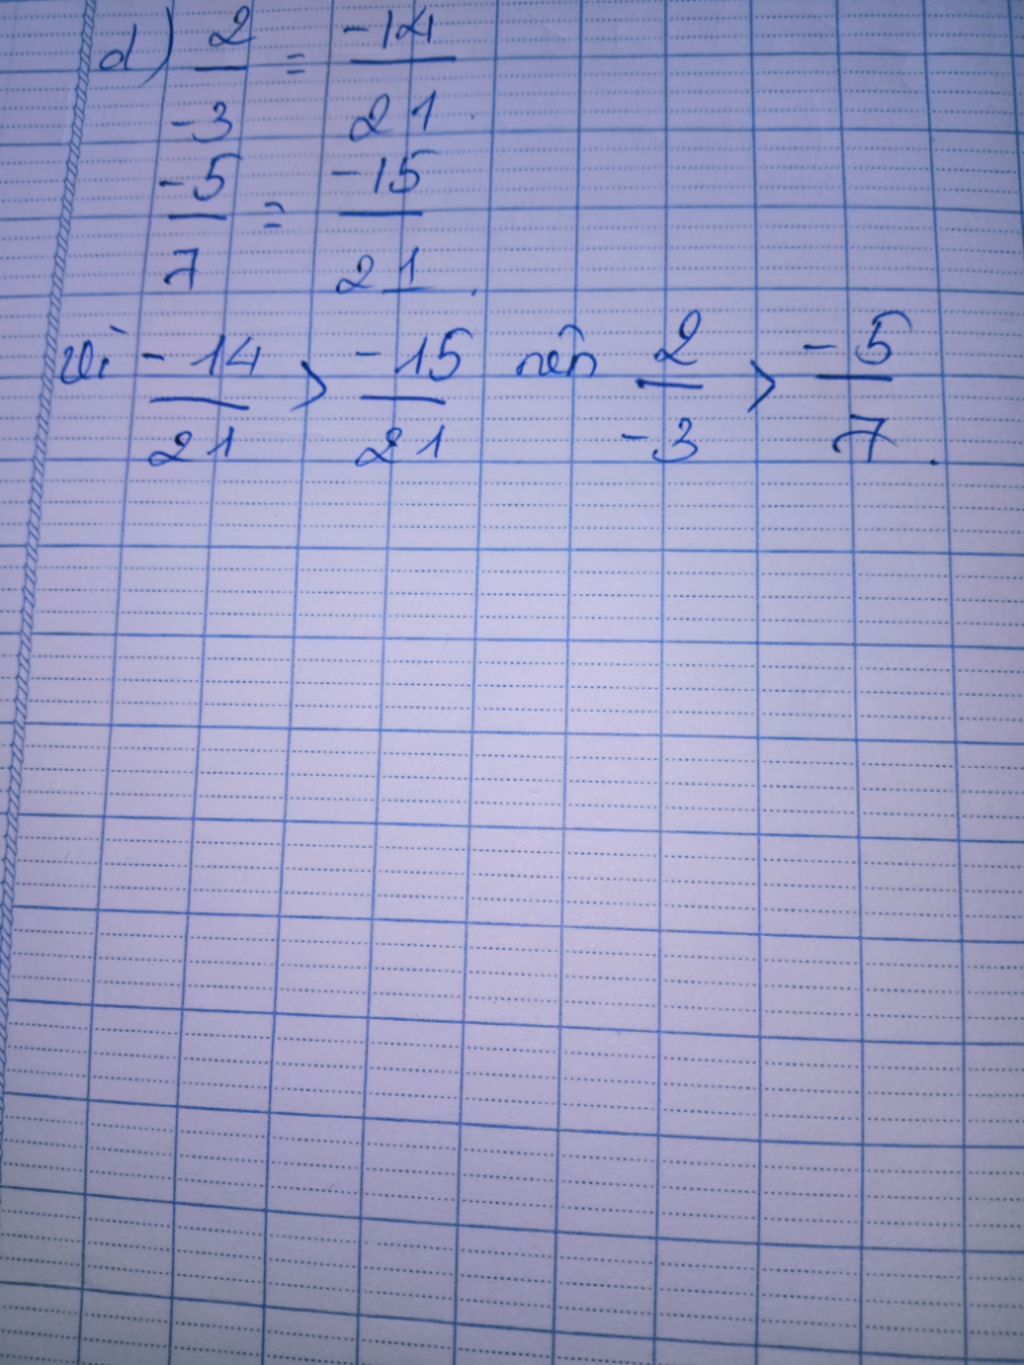 d) 2/-3 = -14/21
-5/7 = -15/21.
Vì -14/21 > -15/21 nên 2/-3 > -5/7.